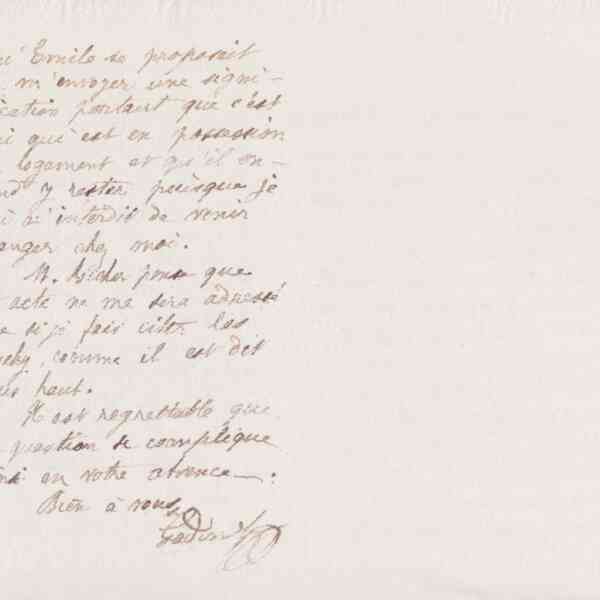 Emile se proposait
m'envoyer une signi-
ication portant que c'est
i qui est en possession
logement et qu'il en-
nd y rester puisque je
i ai interdit de venir
anger chez moi.
M. pense que
acte ne me sera adressé
e si je fais citer les
comme il est dit
us haut.
Il est regrettable que
question se complique
nsi en votre absence.
Bien à vous